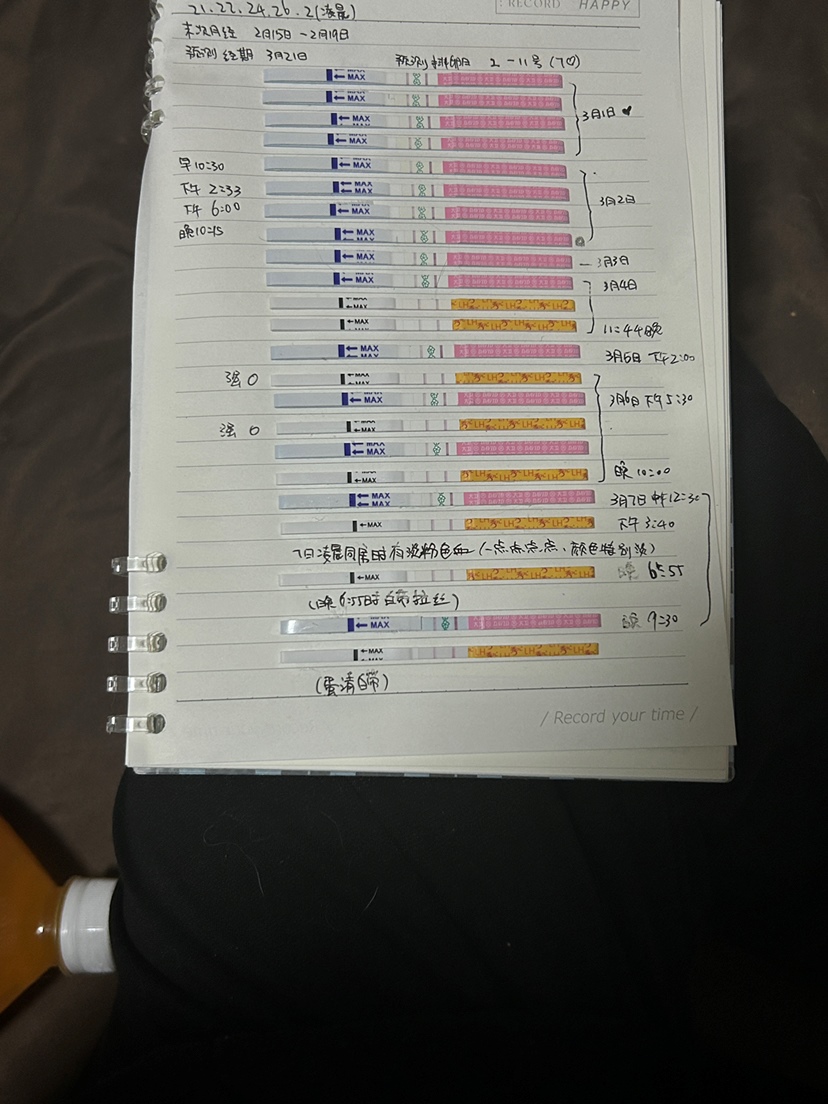 21.22.24.26.2(凌晨)
: RECORD HAPPY
末次月经 2月15日-2月19日
预测经期 3月21日
预测排卵日 2-11号(7♡)
MAX
MAX
MAX
MAX
3月1日♥
早10:30 MAX
下午2:33 MAX
下午6:00 MAX
晚10:15 MAX
3月2日
MAX 3月3日
MAX 3月4日
MAX
MAX 11:44晚
MAX 下午2:00
强O MAX
MAX 3月6日 下午5:30
强O MAX
MAX
MAX 晚10:00
MAX 3月7日 12:30
MAX 下午3:40
7日凌晨同房时有淡粉色血(一点点点点、颜色特别淡)
MAX 晚6:55
(晚6:55时白带拉丝)
MAX 9:30
MAX
(蛋清白带)
/ Record your time /